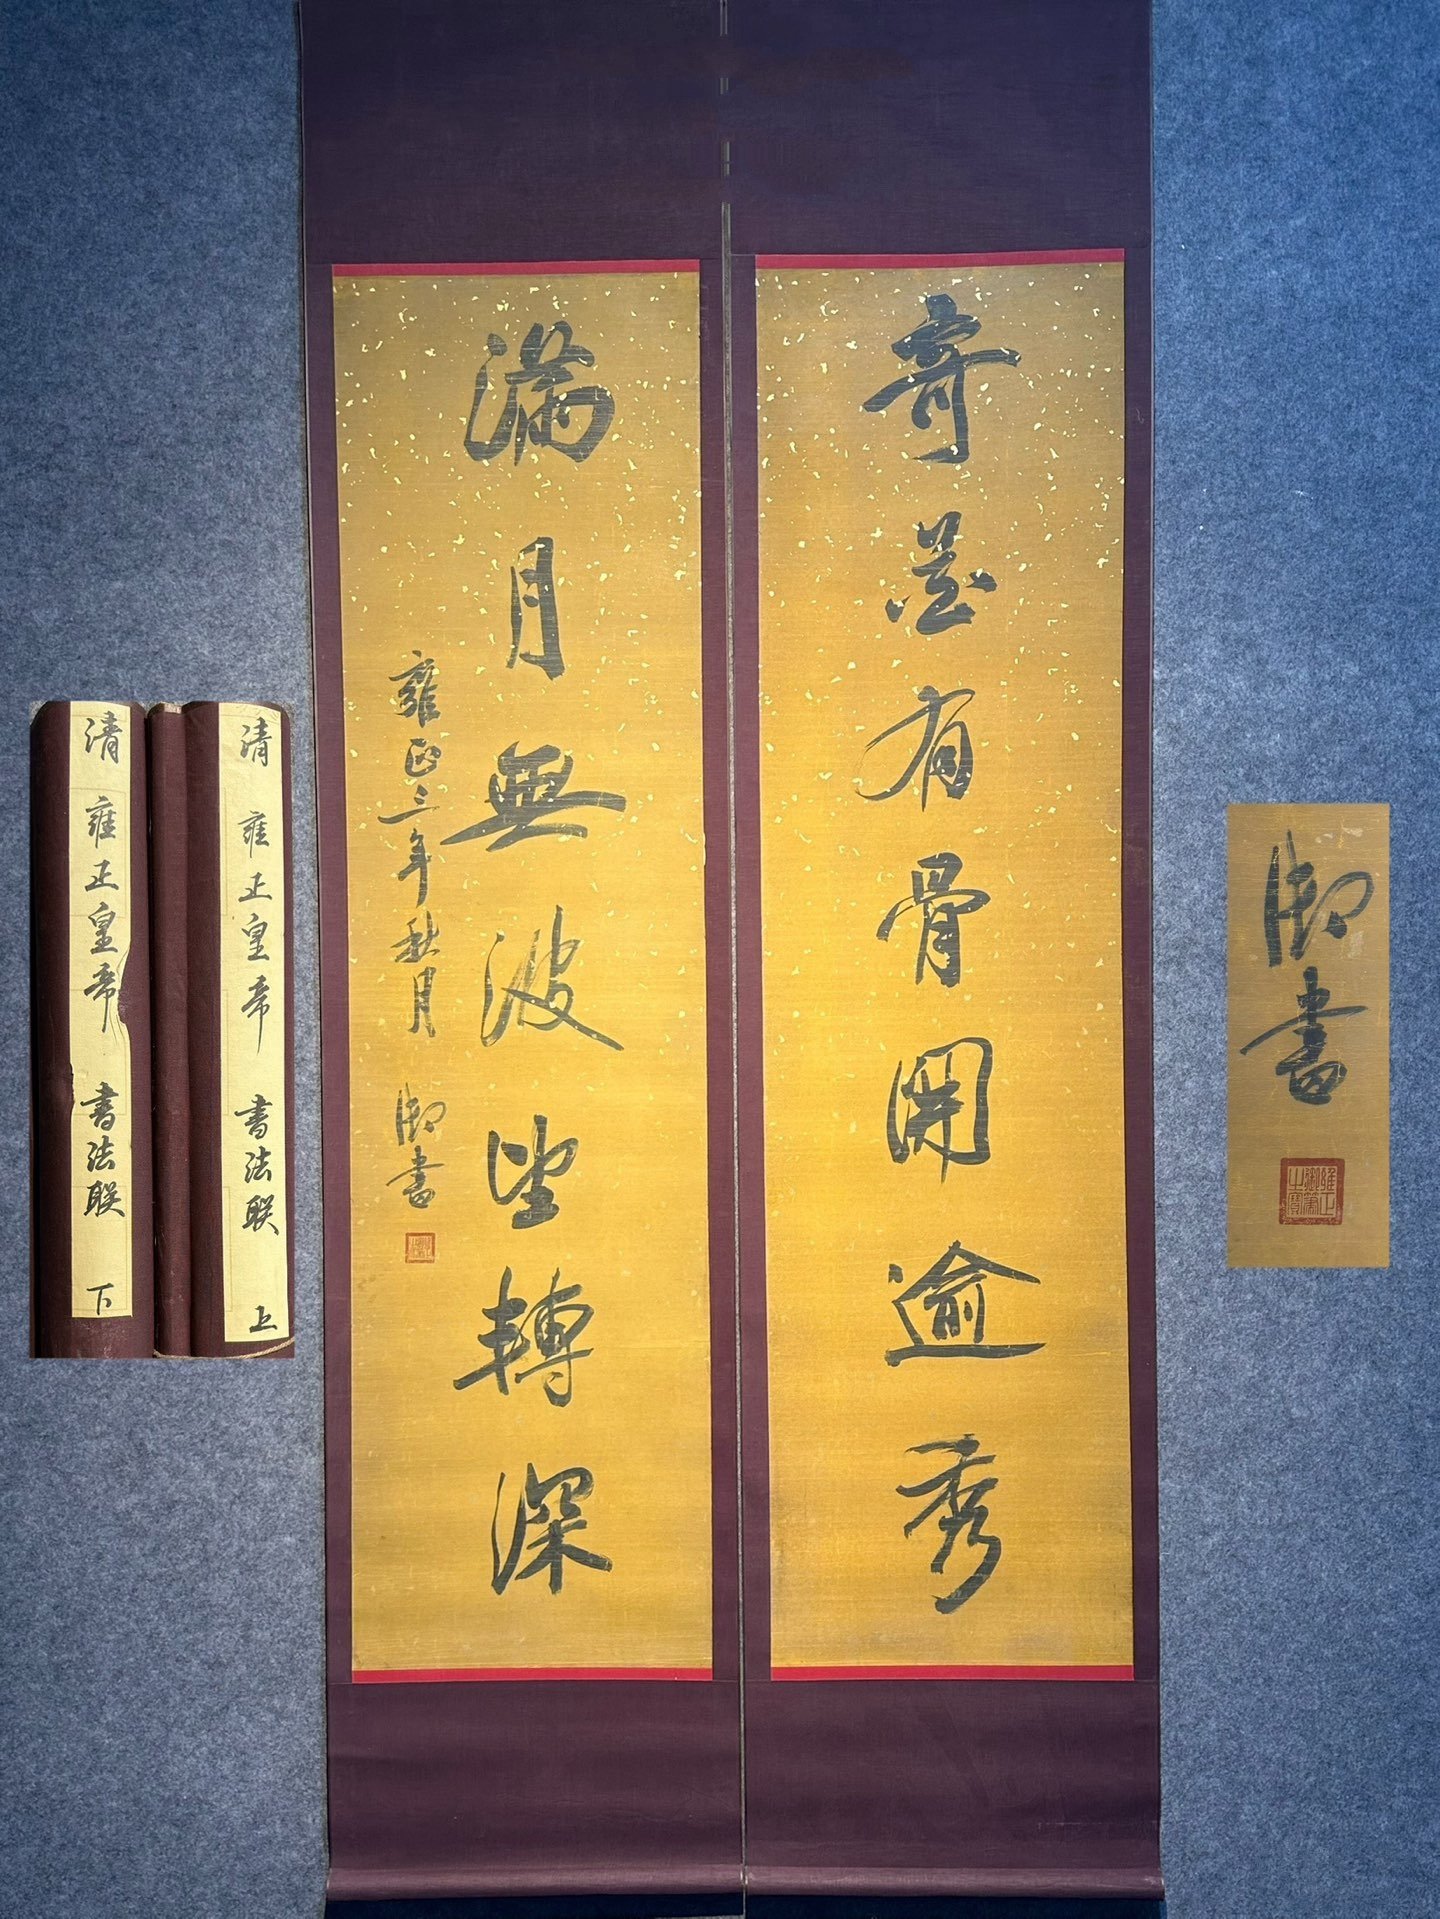 奇花有骨開逾秀
滿月無波望轉深
雍正三年秋月 御書
清 雍正皇帝 書法联 上
清 雍正皇帝 書法联 下
御書
雍正
御筆
之寶